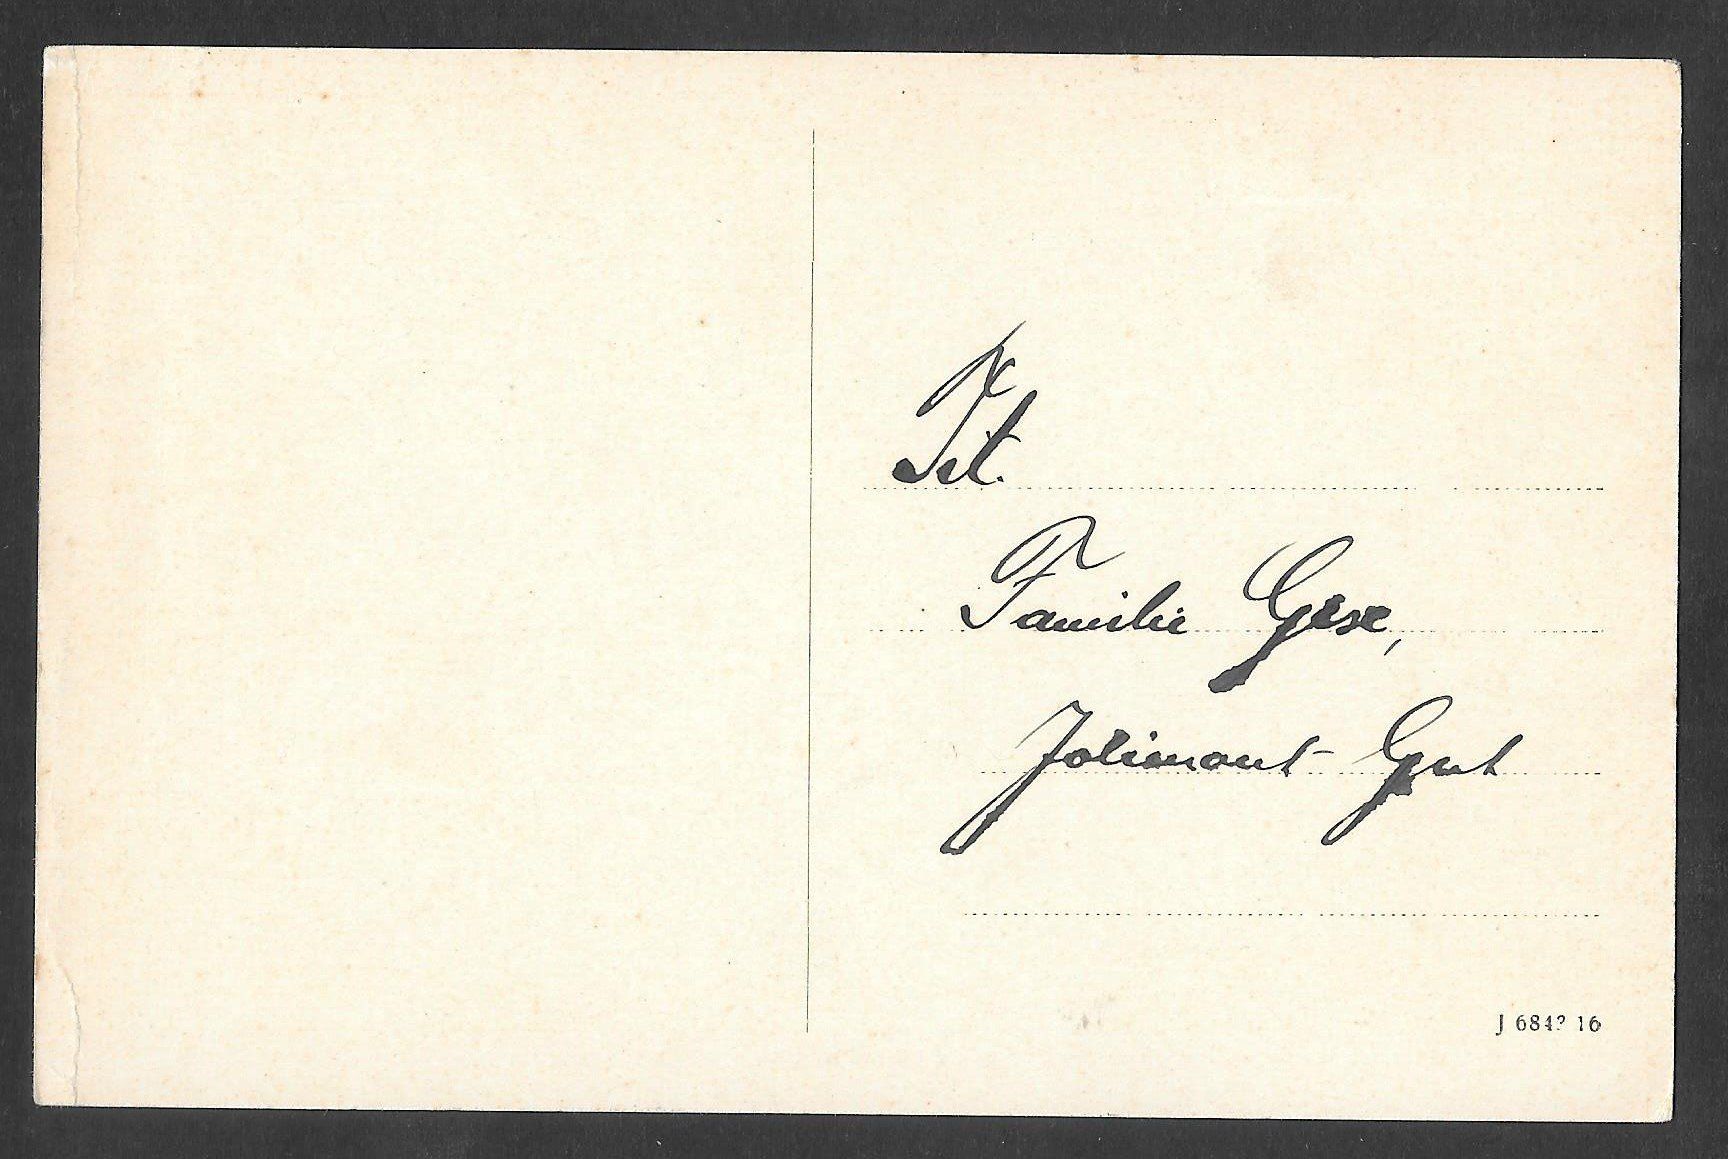 Tit.
Familie Gese,
Jolimont-Gut
J 684? 16